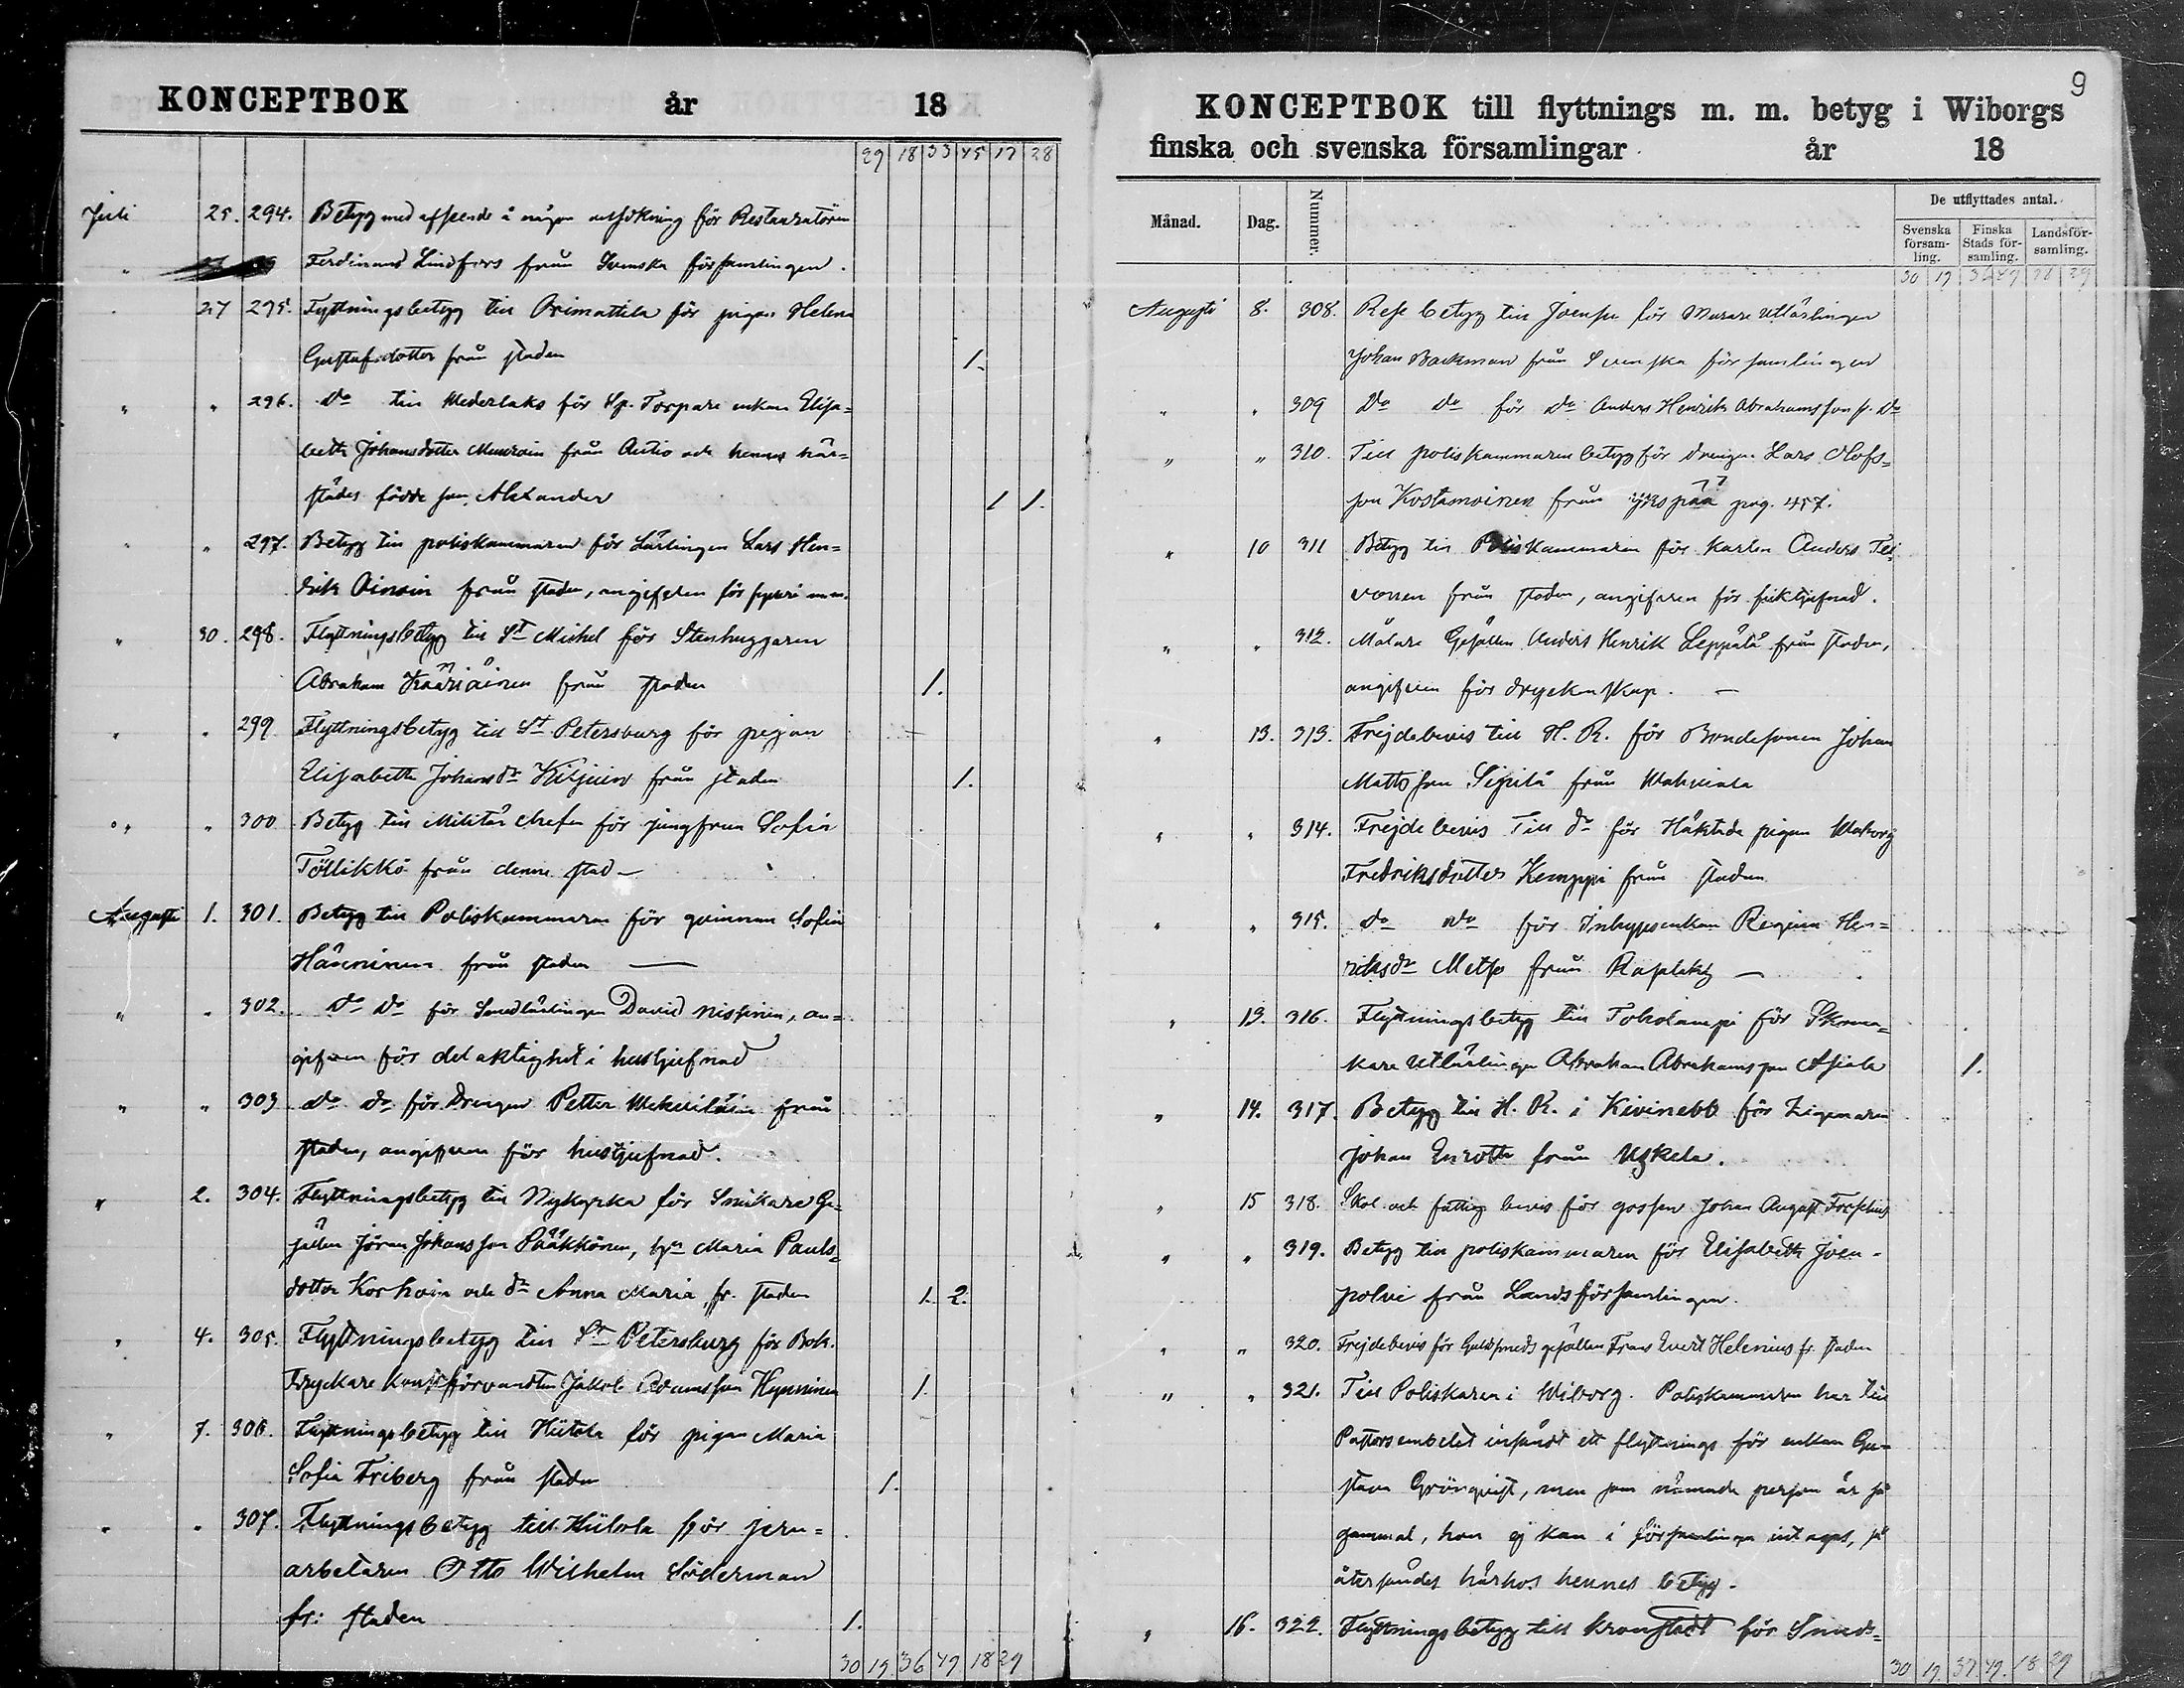 KONCEPTBOK år 18
29 18 33 45 17 28
Juli 25. 294. Betyg med afseende å någon ansökning för Restauratören
" Ferdinand Lindfors från Svenska församlingen.
27 295. Flyttningsbetyg till Orimattila för pigan Helena
Gustafsdotter från staden 1.
" " 296. Do till Wederlaks för Sp. Torpare enkan Elisa=
beth Johansdotter Munroin från Autio och hennes här=
städes födde son Alexander 1 1.
" " 297. Betyg till poliskammaren för Lärlingen Lars Hen=
drik Oinoin från staden, angifven för
" 30. 298. Flyttningsbetyg till St Michel för Stenhuggaren
Abraham Kääriäinen från staden 1.
" " 299 Flyttningsbetyg till St Petersburg för pigan
Elisabeth Johansdr Kiljuin från staden 1.
" " 300 Betyg till Militär chefen för jungfrun Sofia
Töllikkö från denna stad —
Augusti 1. 301. Betyg till Poliskammaren för qvinnan Sofia
Hänninen från staden —
" " 302. Do Do för Smedlärlingen David Nissinen, an=
gifven för delaktighet i hustjufnad
" " 303 do do för Drengen Petter från
staden, angifven för hustjufnad.
" 2. 304. Flyttningsbetyg till Nykyrka för Snickare Ge=
sällen Jöran Johansson Pääkkönen, hu Maria Pauls=
dotter Korhoin och dr Anna Maria, fr. staden 1. 2.
" 4. 305. Flyttningsbetyg till St Petersburg för Bok.
tryckare Konstförvandten Jakob Adamsson Hynninen 1.
" 7. 306. Flyttningsbetyg till Hiitola för pigan Maria
Sofia Friberg från staden 1.
" " 307. Flyttningsbetyg till Hiitola för jern=
arbetaren Otto Wilhelm Söderman
fr: staden 1.
30 19. 36 49 18 29
9
KONCEPTBOK till flyttnings m. m. betyg i Wiborgs
finska och svenska församlingar år 18
Månad. Dag. Nummer. De utflyttades antal.
Svenska församling. Finska Stads församling. Landsförsamling.
30 19 36 49 18 29
Augusti 8. 308. Rese betyg till Joensu för Murare Utlärlingen
Johan Backman från Svenska församlingen
" " 309 Do Do för do Anders Henrik Abrahamsson fr. Do
" " 310. Till poliskammaren betyg för drengen Lars Olofs=
son Kostamoinen från Ykspää pag. 457.
" 10 311 Betyg till Poliskammaren för karlen Anders Ter
vonen från staden, angifven för ficktjufnad.
" " 312. Målare Gesällen Anders Henrik Leppälä från staden,
angifven för dryckenskap. —
" 13. 313. Frejdebevis till H. R. för Bondesonen Johan
Mattsson Sipilä från
" " 314. Frejdebevis Till do för Häktade pigan Waborg
Fredriksdotter Kemppi från staden
" " 315. do do för Inhysesenkan Regina Hen=
riksdr Metso från —
" 13. 316. Flyttningsbetyg till Toholampi för Skoma=
kare Utlärlingen Abraham Abrahamsson Asiala 1.
" 14. 317. Betyg till H. R. i Kivinebb för Zigenaren
Johan Enroth från Uskela.
" 15 318. Skol och fattig bevis för gossen Johan August Forselius
" " 319. Betyg till poliskammaren för Elisabeth Joen-
polvi från Landsförsamlingen.
" " 320. Frejdebevis för Guldsmeds gesällen Frans Evert Helenius fr. staden
" " 321. Till Poliskaren i Wiborg. Poliskammaren har till
Pastorsembetet insändt ett flyttnings för enkan Gu=
stava Grönqvist, men som nämnde person är så
gammal, hon ej kan i församlingen intagas, så
återsändes härhos hennes betyg.
" 16. 322. Flyttningsbetyg till Kronstadt för Smeds=
30 19. 37. 49. 18 29